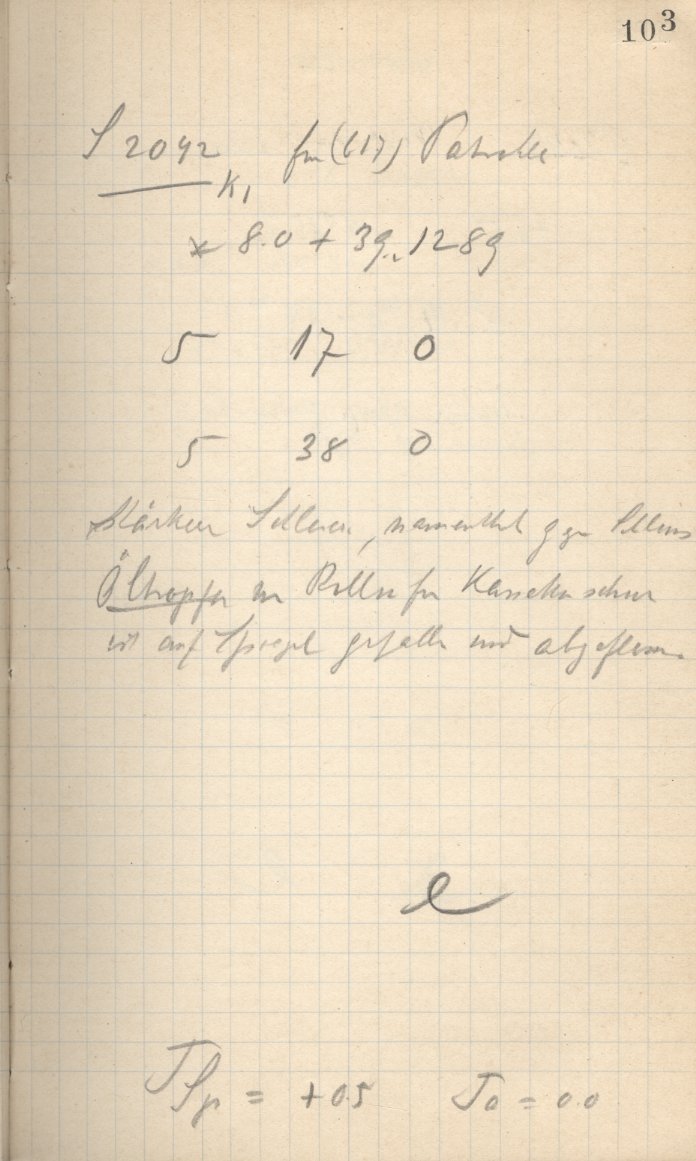 103
S 2042 für (617) Patrokle
K1
* 8.0 + 39.1289
5 17 0
5 38 0
Stärkere Schleier, namentlich gegen
Öltropfen von Rollen für Kassettenschur
ist auf Spiegel gefallen und abgeflossen.
e
TSp = +0.5 To = 0.0